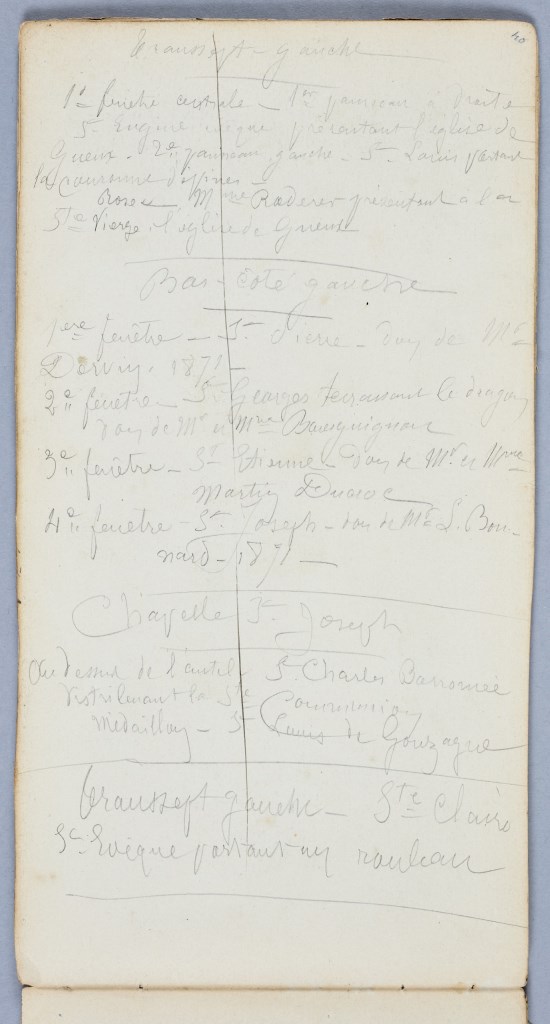 40
Transsept gauche
1e fenêtre centrale - 1er panneau à droite
St évêque présentant l'église de
Gueux. 2e panneau gauche. St Louis portant
la couronne d'épines -
Rosace, Mme Roederer présentant à la
Ste Vierge l'église de Gueux
Bas-côté gauche
1ere fenêtre - St Pierre - don de Mr
1871 -
2e fenêtre - St Georges terrassant le dragon
don de Mr et Mme
3e fenêtre - St Etienne - don de Mr et Mme
Martin
4e fenêtre - St Joseph - don de Mr L. Bon-
nard - 1871 -
Chapelle St Joseph
Au dessus de l'autel St Charles Borromée
distribuant la Ste Communion
Médaillon - St Louis de Gonzague
Transsept gauche - Ste Claire
St Evêque portant un rouleau